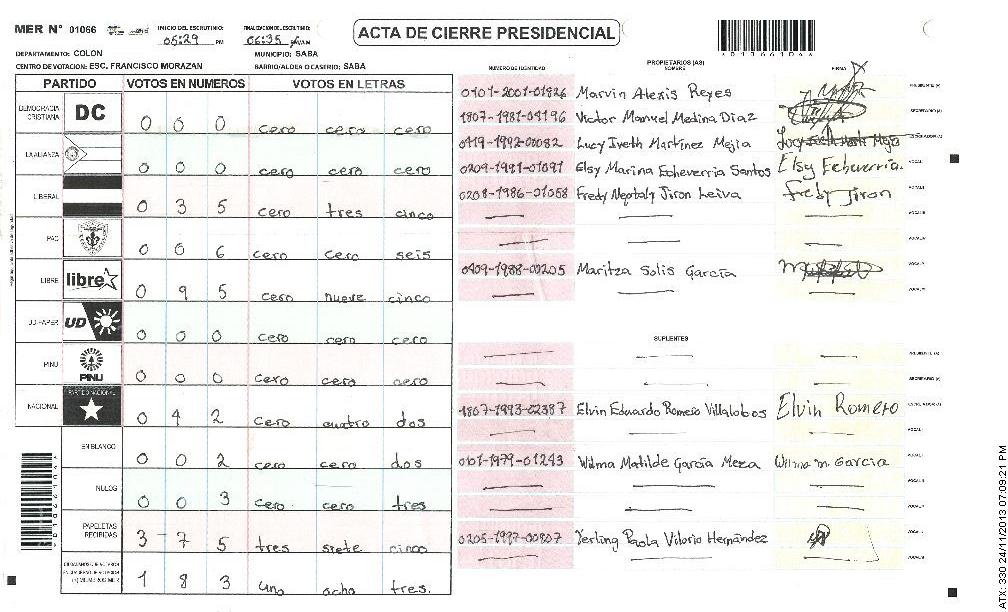 MER N° 01066
INICIO DEL ESCRUTINIO: 05:29 PM
FINALIZACION DEL ESCRUTINIO: 06:35
ACTA DE CIERRE PRESIDENCIAL
DEPARTAMENTO: COLON
MUNICIPIO: SABA
CENTRO DE VOTACION: ESC. FRANCISCO MORAZAN
BARRIO/ALDEA O CASERIO: SABA
PARTIDO VOTOS EN NUMEROS VOTOS EN LETRAS
DEMOCRACIA CRISTIANA DC 0 0 0 cero cero cero
LA ALIANZA 0 0 0 cero cero cero
LIBERAL 0 3 5 cero tres cinco
PAC 0 0 6 cero cero seis
LIBRE libre 0 9 5 cero nueve cinco
UD-FAPER UD 0 0 0 cero cero cero
PINU PINU 0 0 0 cero cero cero
NACIONAL PARTIDO NACIONAL 0 4 2 cero cuatro dos
EN BLANCO 0 0 2 cero cero dos
NULOS 0 0 3 cero cero tres
PAPELETAS RECIBIDAS 3 - 7 5 tres siete cinco
1 8 3 uno ocho tres.
NUMERO DE IDENTIDAD
PROPIETARIOS (AS)
NOMBRE
FIRMA
0101-2001-01826 Marvin Alexis Reyes PRESIDENTE (A)
1807-1981-04196 Victor Manuel Medina Diaz SECRETARIO (A)
0419-1992-00082 Lucy Iveth Martínez Mejia
0209-1981-01091 Elsy Marina Echeverria Santos Elsy Echeverria.
0208-1986-01058 Fredy Neptaly Jiron Leiva Fredy Jiron
0409-1988-00205 Maritza Solis García
SUPLENTES
PRESIDENTE (A)
SECRETARIO (A)
1807-1993-02387 Elvin Eduardo Romero Villalobos Elvin Romero
0101-1979-01243 Wilma Matilde García Meza Wilma M. Garcia
0205-1997-00807 Yerling Paola Vilorio Hernández
ATX: 330 24/11/2013 07:09:21 PM